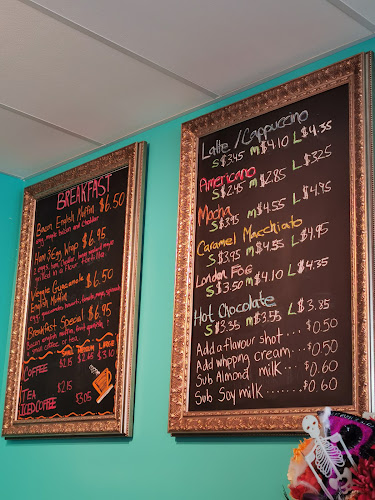 BREAKFAST
Bacon English Muffin $6.50
egg, mayo, bacon and cheddar
Ham & Egg Wrap $6.95
Veggie Guacamole $6.50
English Muffin
Breakfast Special $6.95
Bacon, english muffin,
& small coffee or tea
SMALL MEDIUM LARGE
COFFEE $2.15 $2.65 $3.10
TEA $2.15
ICED COFFEE $3.05
Latte / Cappuccino
S $3.45 M $4.10 L $4.35
Americano
S $2.45 M $2.85 L $3.25
Mocha
S $3.95 M $4.55 L $4.95
Caramel Macchiato
S $3.95 M $4.55 L $4.95
London Fog
S $3.50 M $4.10 L $4.35
Hot Chocolate
S $3.35 M $3.55 L $3.85
Add a flavour shot... $0.50
Add whipping cream... $0.50
Sub Almond milk... $0.60
Sub Soy milk....... $0.60